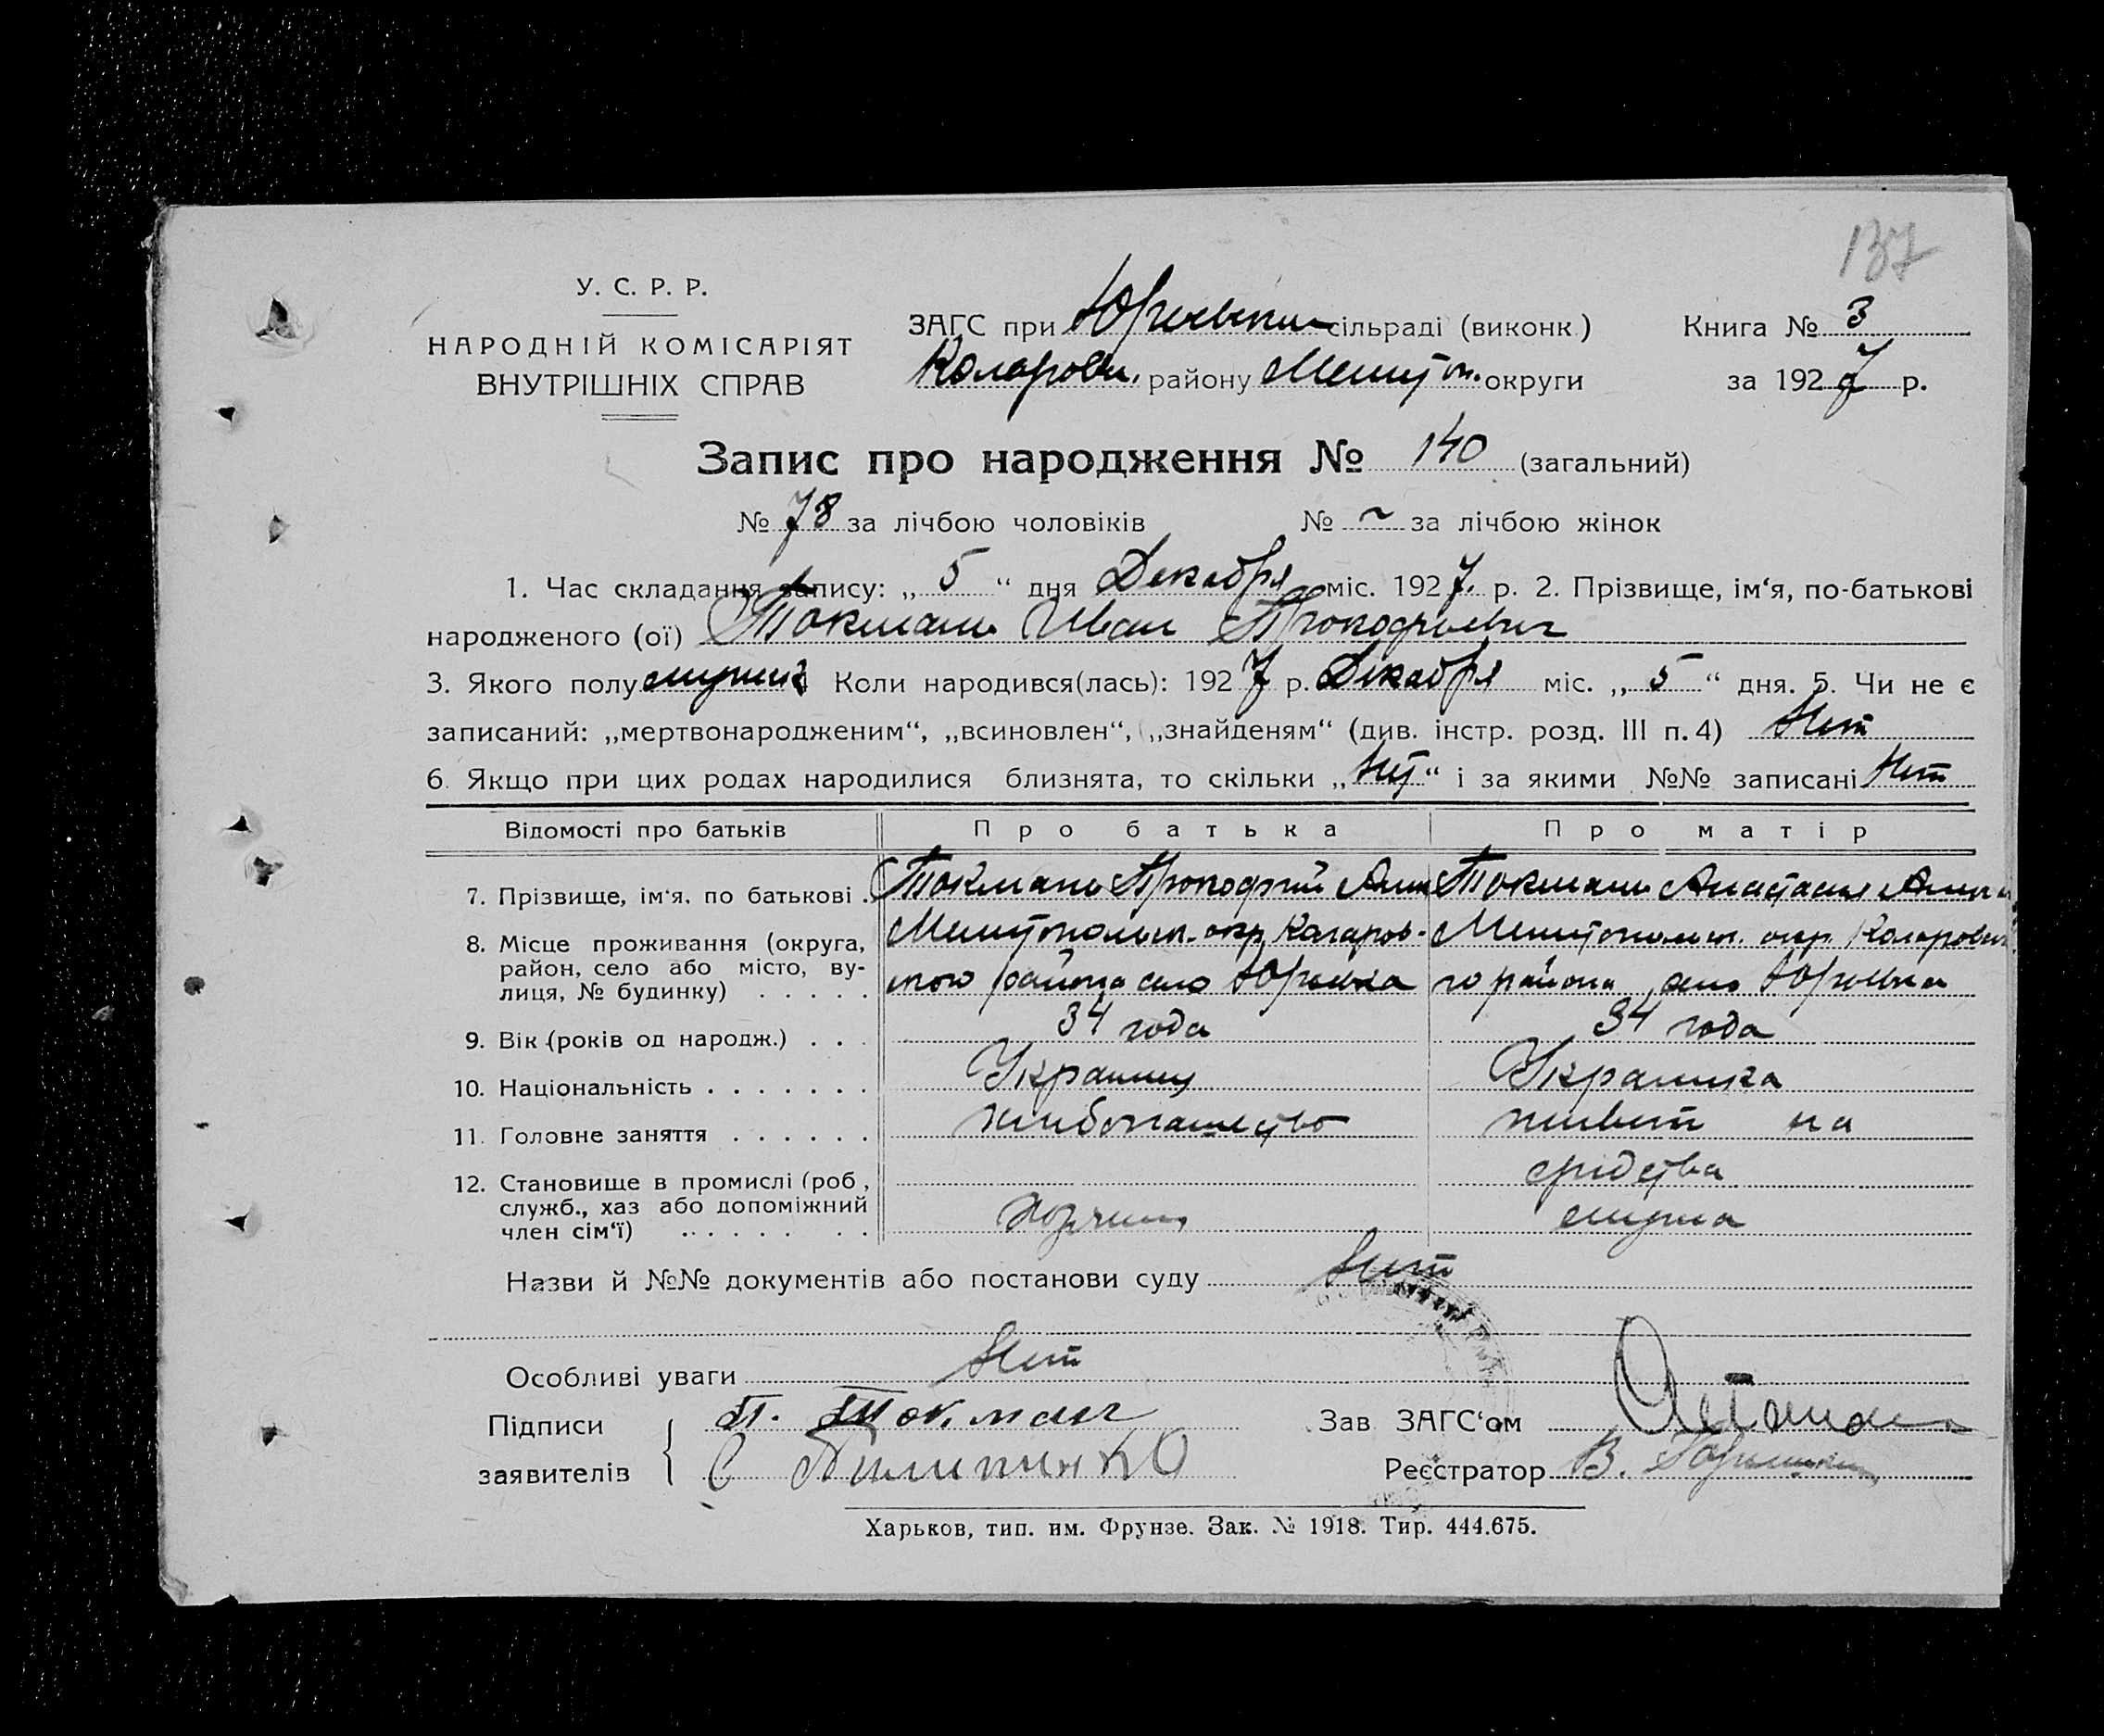 137
У. С. Р. Р.
НАРОДНІЙ КОМІСАРІЯТ
ВНУТРІШНІХ СПРАВ
ЗАГС при Юрьевском сільраді (виконк.)
Коларовск. району Мелитоп. округи
Книга № 3
за 1927 р.
Запис про народження № 140 (загальний)
№ 78 за лічбою чоловіків № ~ за лічбою жінок
1. Час складання запису: „ 5 “ дня Декабря міс. 1927 р. 2. Прізвище, ім‘я, по-батькові
народженого (ої) Токмань Иван Прокофьевич
3. Якого полу Коли народився(лась): 1927 р. Декабря міс. „ 5 “ дня. 5. Чи не є
записаний: „мертвонародженим“, „всиновлен“, „знайденям“ (див. інстр. розд. III п. 4) Нет
6. Якщо при цих родах народилися близнята, то скільки „ Нет “ і за якими №№ записані Нет
Відомості про батьків Про батька Про матір
7. Прізвище, ім‘я, по батькові . Токмань Прокофий Токмань Анастасия
8. Місце проживання (округа, Мелитопольск. окр. Коларов- Мелитопольск. окр. Коларовск
район, село або місто, ву-
лиця, № будинку) . . . . . ского района село Юрьевка го района село Юрьевка
9. Вік (років од народж.) . . . 34 года 34 года
10. Національність . . . . . . . Украинец Украинка
11. Головне заняття . . . . . . хлебопашество живет на
12. Становище в промислі (роб., средства
служб., хаз або допоміжний
член сім‘ї) . . . . . . . Хозяин мужа
Назви й №№ документів або постанови суду Нет
Особливі уваги Нет
Підписи П. Токмань Зав ЗАГС‘ом
заявителів С Пилипенко Реєстратор В.
Харьков, тип. им. Фрунзе. Зак. № 1918. Тир. 444.675.